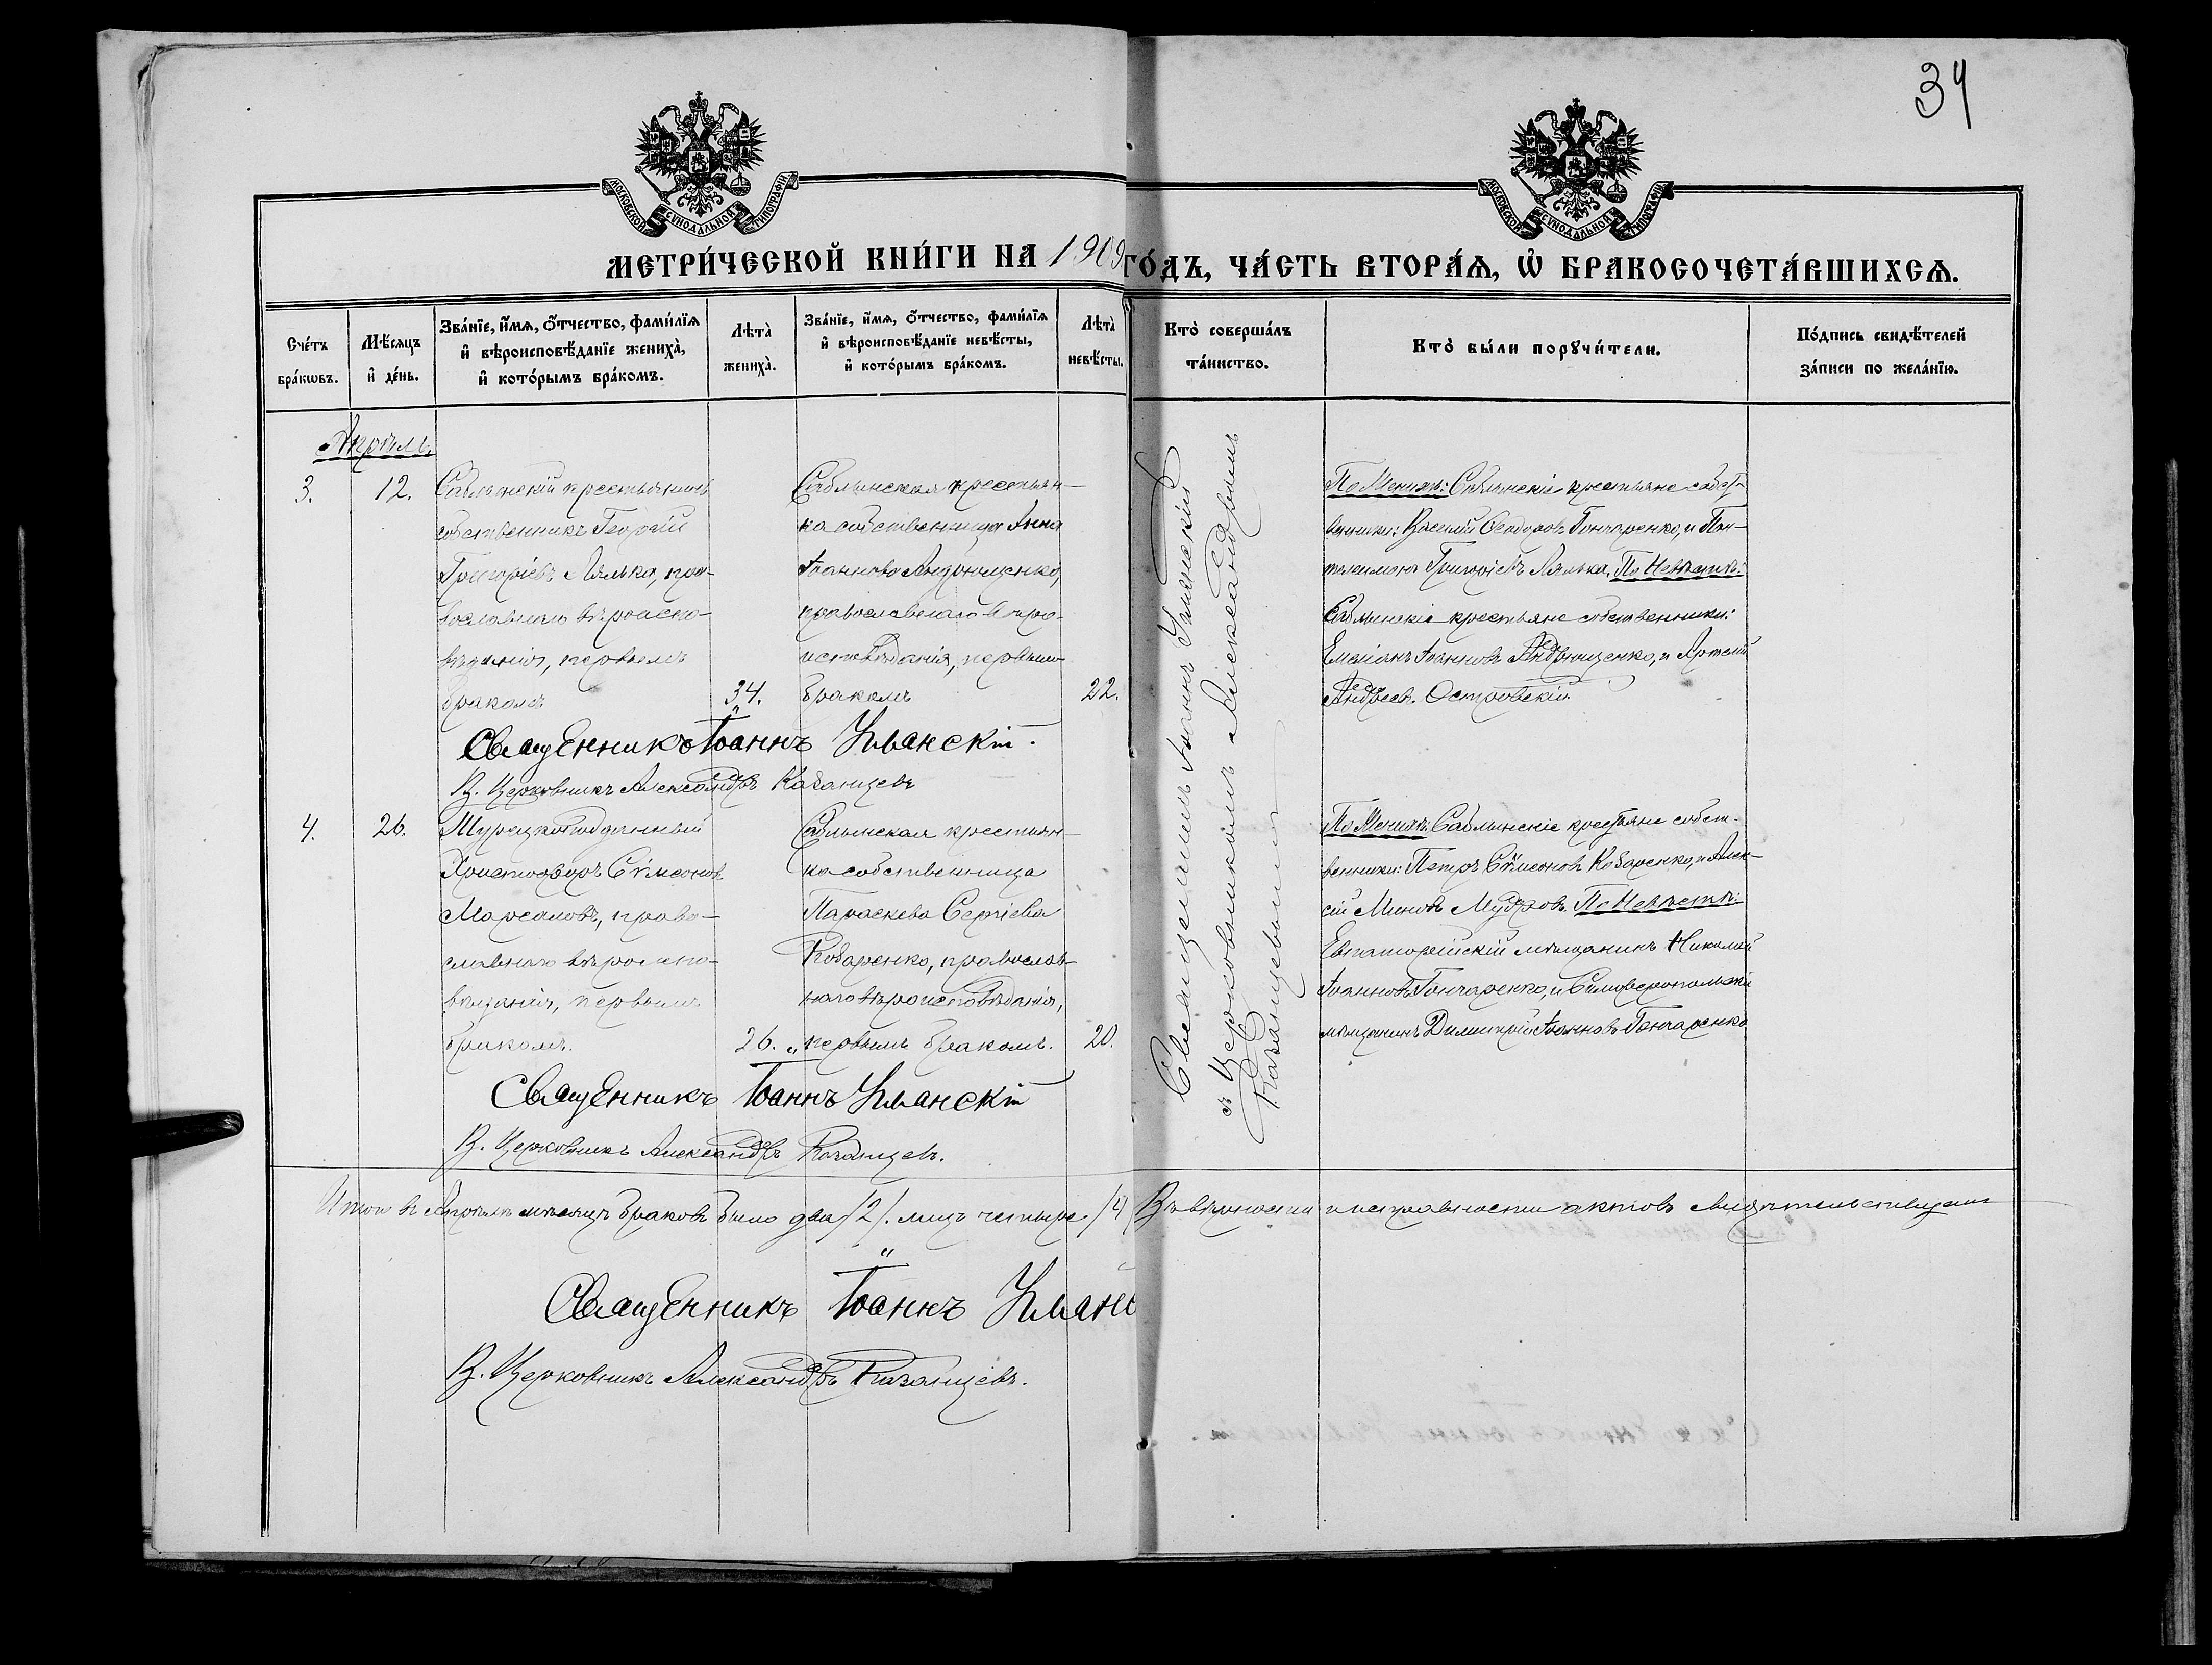 34
МОСКОВСКОЙ СУНОДАЛЬНОЙ ТИПОГРАФІИ
МОСКОВСКОЙ СУНОДАЛЬНОЙ ТИПОГРАФІИ
МЕТРИ́ЧЕСКОЙ КНИ́ГИ НА 1909 ГО́ДЪ, ЧА́СТЬ ВТОРА́Я, Ѡ БРАКОСОЧЕТА́ВШИХСЯ.
Сче́тъ бра́кѡвъ.
Мѣ́сяцъ и҆ де́нь.
Зва́нїе, и҆́мя, ѻ҆́тчество, фами́лїя
и҆ вѣроисповѣ́данїе жениха̀,
и҆ кото́рымъ бра́комъ.
Лѣта̀ жениха̀.
Зва́нїе, и҆́мя, ѻ҆́тчество, фами́лїя
и҆ вѣроисповѣ́данїе невѣ́сты,
и҆ кото́рымъ бра́комъ.
Лѣта̀ невѣ́сты.
Кто̀ соверша́лъ
та́инство.
Кто̀ бы́ли порꙋчи́тели.
По́дпись свидѣ́телей
за́писи по жела́нїю.
Апрѣль.
3.
12.
Саблынскій крестьянинъ
собственникъ Георгій
Григоріевъ Лялька, пра-
вославнаго вѣроиспо-
вѣданія, первымъ
бракомъ
34.
Саблынская крестьян-
ка собственница Анна
Іоаннова Андрющенко,
православнаго вѣро-
исповѣданія, первымъ
бракомъ
22.
Священникомъ Іоаннъ Уманскій
съ Церковникомъ Александромъ
Казанцевымъ
По Женихѣ: Саблынскіе крестьяне собст-
венники: Василій Ѳеодоровъ Гончаренко, и Пан-
телеимонъ Григоріевъ Лялька. По Невѣстѣ:
Саблынскіе крестьяне собственники:
Емеліанъ Іоанновъ Андрющенко, и Артемій
Андреевъ Островскій.
Священникъ Іоаннъ Уманскій.
В. Церковникъ Александръ Казанцевъ
4.
26.
Турецкоподданный
Христофоръ Сѵмеоновъ
Марсаловъ, право-
славнаго вѣроиспо-
вѣданія, первымъ
бракомъ.
26.
Саблынская крестьян-
ка собственница
Параскева Сергіева
Кобаренко, православ-
наго вѣроисповѣданія,
первымъ бракомъ.
20.
По Женихѣ: Саблынскіе крестьяне собст-
венники: Петръ Сѵмеоновъ Кобаренко, и Алек-
сій Миновъ Мудровъ. По Невѣстѣ:
Евпаторійскій мѣщанинъ Николай
Іоанновъ Гончаренко, и Симферопольскій
мѣщанинъ Димитрій Іоанновъ Гончаренко
Священникъ Іоаннъ Уманскій
В. Церковникъ Александръ Казанцевъ.
Итого въ Апрѣлѣ мѣсяцѣ браковъ было два /2/. лицъ четыре. /4
Въ вѣрности и исправности актовъ свидѣтельствуемъ
Священникъ Іоаннъ Уманс
В. Церковникъ Александръ Казанцевъ.